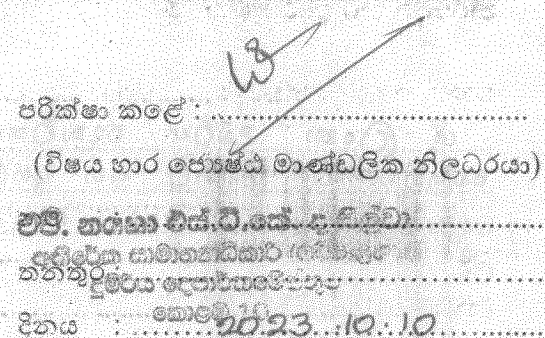 පරික්ෂා කළේ : ..............................
(විෂය භාර ජ්‍යෙෂ්ඨ මාණ්ඩලික නිලධරයා)
එස්.ඩී.කේ.
අතිරේක සාමාන්‍යාධිකාරී
තනතුර
දුම්රිය දෙපාර්තමේන්තුව
කොළඹ
දිනය : 2023.10.10